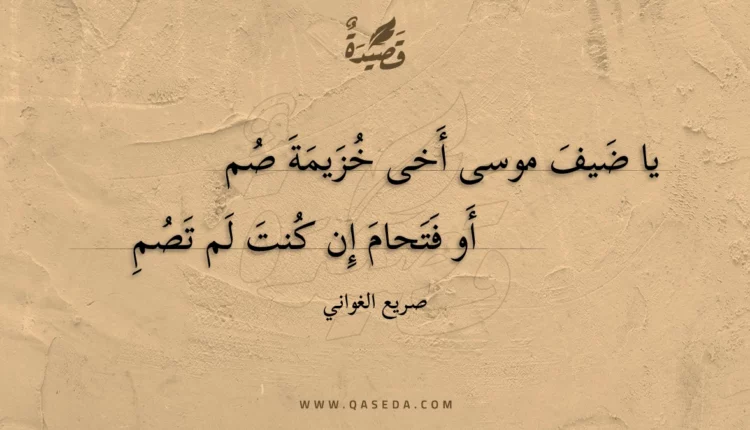 قَصِيْدَةٌ
يا ضَيفَ موسى أَخى خُزَيمَةَ صُم
أَو فَتَحامَ إِن كُنتَ لَم تَصُمِ
صريع الغواني
WWW.QASEDA.COM